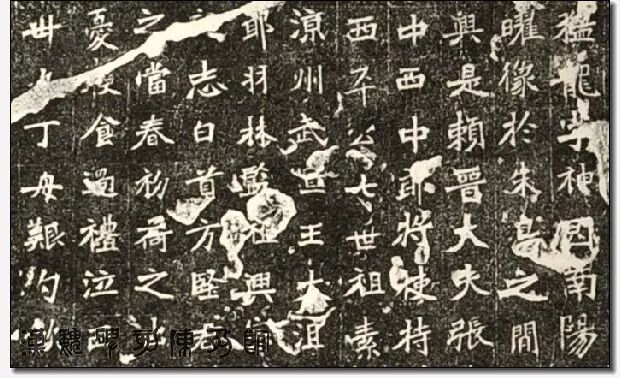 猛龍字神冏南陽
曜像於朱鳥之間
興是賴晉大夫張
中西中郎將使持
西平公七世祖素
涼州武宣王大沮
郎羽林監祖興
志白首方堅
之當春初荷之
憂寢食過禮泣
丁母艱勺
漢魏碑刻陳列館